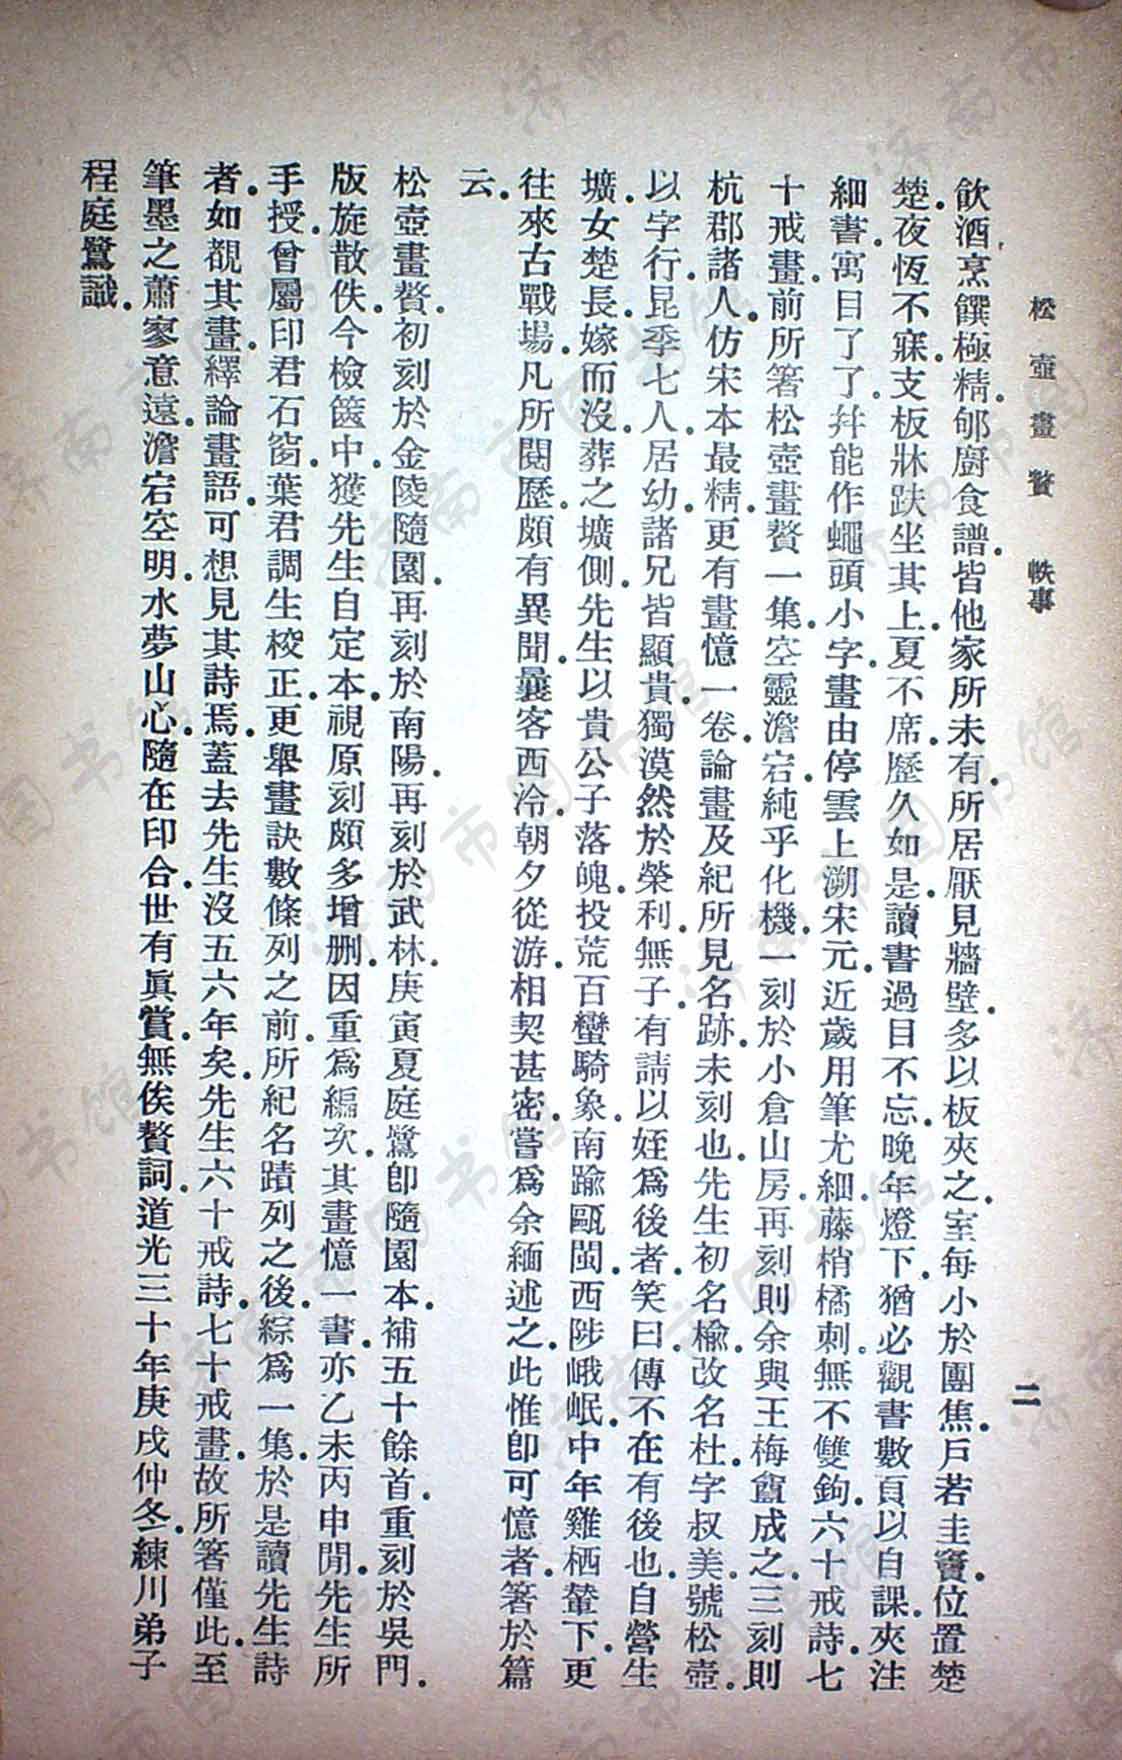 松壺畫贅 軼事 二
飲酒烹饌極精郇廚食譜皆他家所未有所居厭見牆壁多以板夾之室每小於團焦戶若圭竇位置楚
楚夜恆不寐支板牀趺坐其上夏不席歷久如是讀書過目不忘晚年燈下猶必觀書數頁以自課夾注
細書寓目了了幷能作蠅頭小字畫由停雲上溯宋元近歲用筆尤細藤梢橘刺無不雙鉤六十戒詩七
十戒畫前所箸松壺畫贅一集空靈澹宕純乎化機一刻於小倉山房再刻則余與王梅盦成之三刻則
杭郡諸人仿宋本最精更有畫憶一卷論畫及紀所見名跡未刻也先生初名榆改名杜字叔美號松壺
以字行昆季七人居幼諸兄皆顯貴獨漠然於榮利無子有請以姪爲後者笑曰傳不在有後也自營生
壙女楚長嫁而沒葬之壙側先生以貴公子落魄投荒百蠻騎象南踰甌閩西陟峨岷中年雞栖輦下更
往來古戰場凡所閱歷頗有異聞曩客西泠朝夕從游相契甚密嘗爲余緬述之此惟卽可憶者箸於篇
云
松壺畫贅初刻於金陵隨園再刻於南陽再刻於武林庚寅夏庭鷺卽隨園本補五十餘首重刻於吳門
版旋散佚今檢篋中獲先生自定本視原刻頗多增刪因重爲編次其畫憶一書亦乙未丙申閒先生所
手授曾屬印君石窗葉君調生校正更舉畫訣數條列之前所紀名蹟列之後綜爲一集於是讀先生詩
者如覩其畫繹論畫語可想見其詩焉蓋去先生沒五六年矣先生六十戒詩七十戒畫故所箸僅此至
筆墨之蕭寥意遠澹宕空明水夢山心隨在印合世有眞賞無俟贅詞道光三十年庚戌仲冬練川弟子
程庭鷺識
济南市图书馆